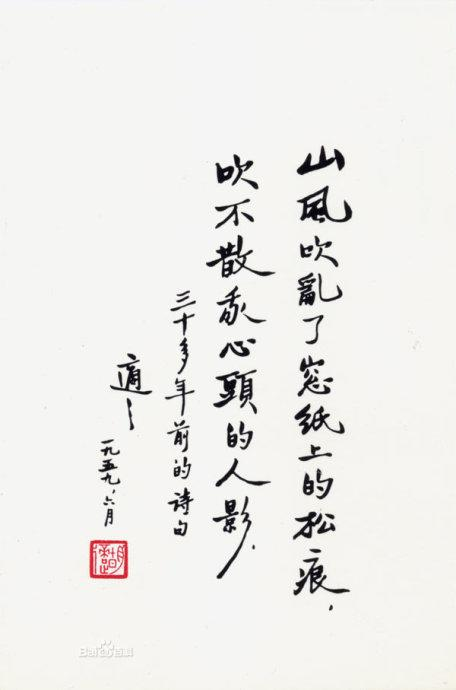 山風吹亂了窓紙上的松痕，
吹不散我心頭的人影．
三十多年前的詩句
適之
一九五九，六月
胡適
Baidu百科